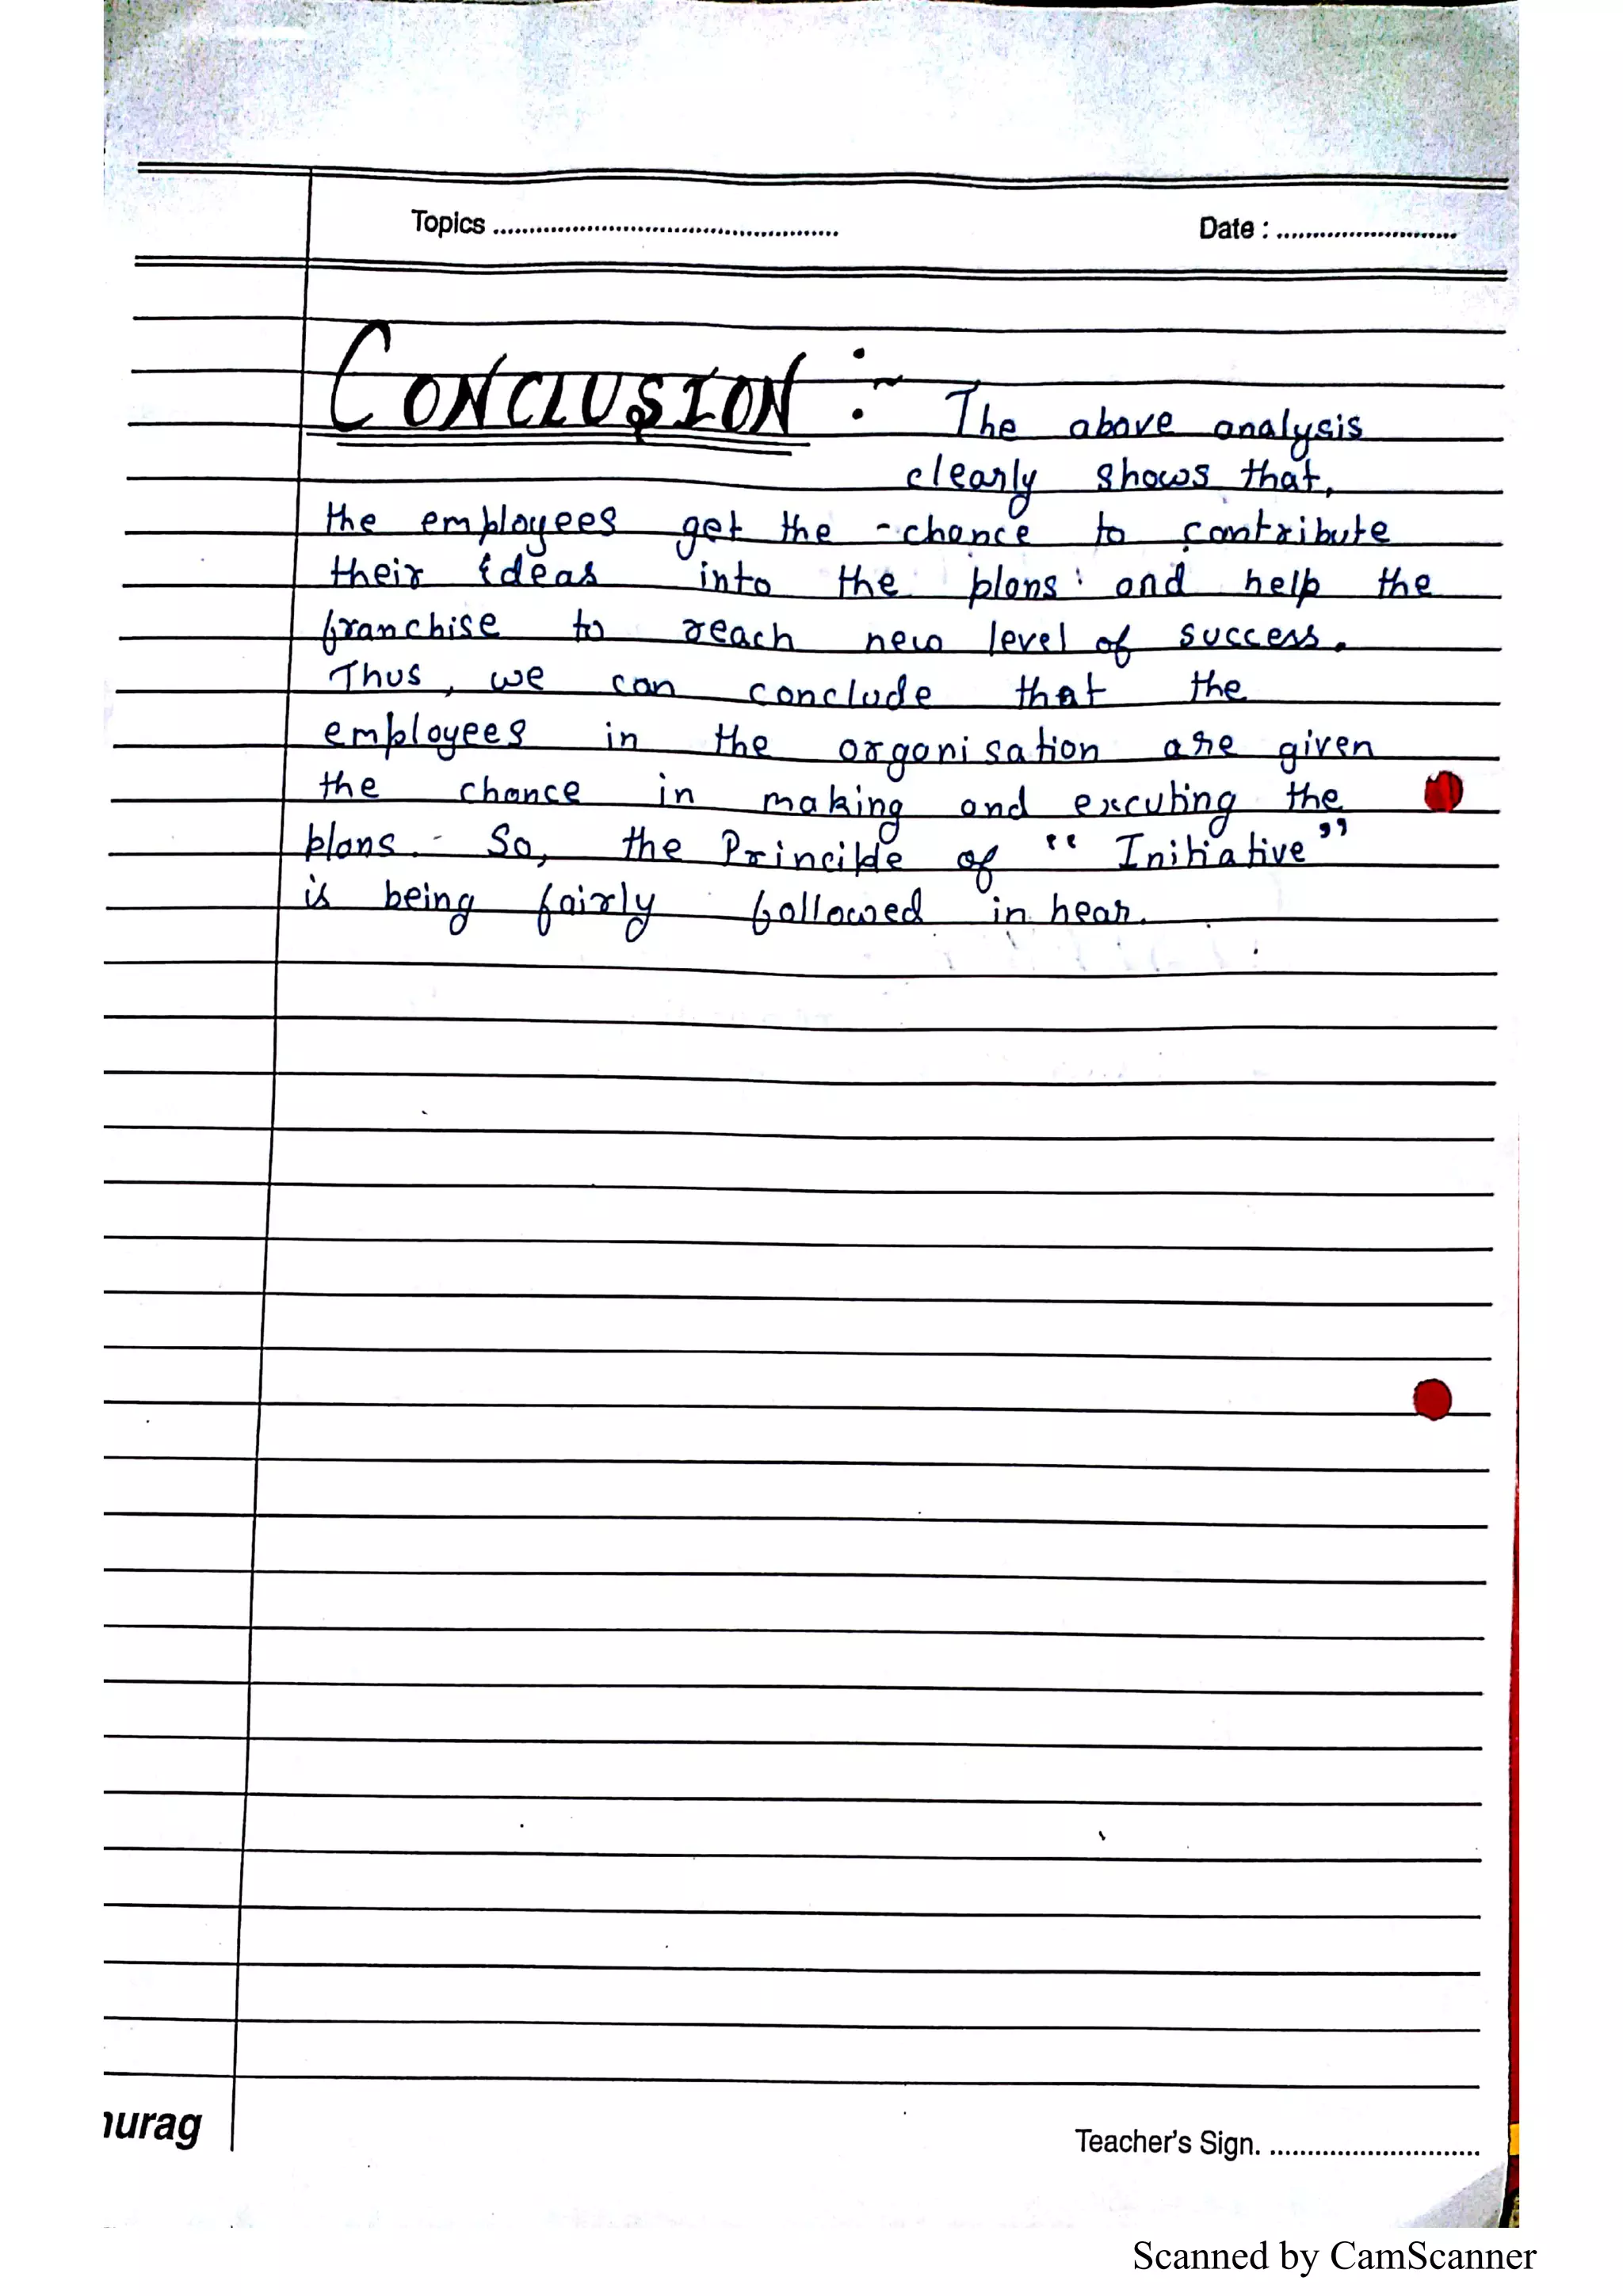 Topics ................................................ Date : ..........................
CONCLUSION :- The above analysis
clearly shows that,
the employees get the chance to contribute
their ideas into the plans and help the
franchise to reach new level of success.
Thus, we can conclude that the
employees in the organisation are given
the chance in making and excuting the
plans. So, the Principle of "Initiative"
is being fairly followed in hear.
urag
Teacher's Sign. ............................
Scanned by CamScanner